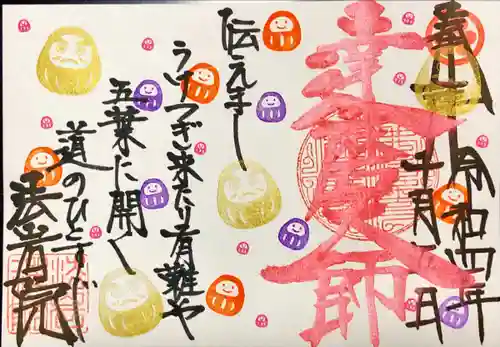 奉拝
令和四年
十月
達磨大師
伝え来し
うけつぎ来たり有難や
五葉に開く
道のひとすじ